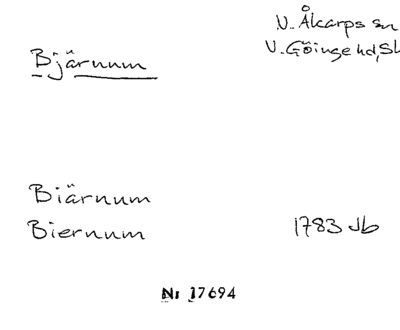 N. Åkarps sn
V. Göinge hd, Sk
Bjärnum
Biärnum
Biernum 1783 Jb
Nr 17694